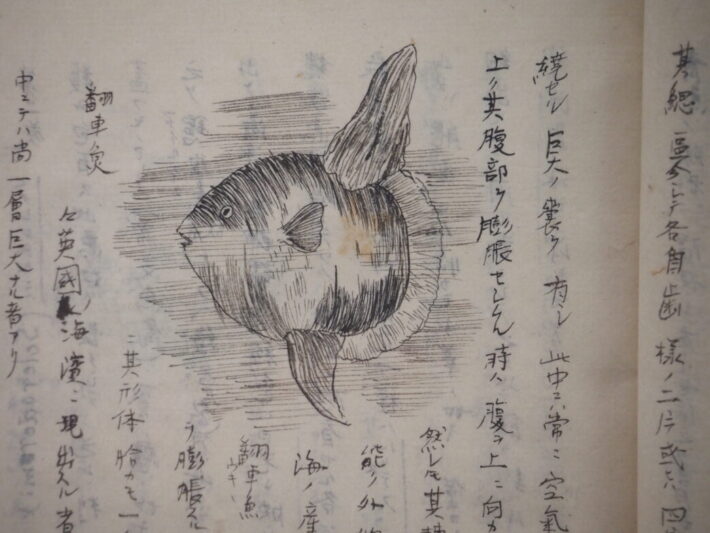 其鰓ノ
各自歯様ノ二片或ハ四
繞セル巨大ノ嚢ヲ有シ此中ニハ常ニ空氣
上ノ其腹部ヲ膨脹セシムル時ハ腹ヲ上ニ向カ
然レモ其
能ク外
海ノ産
翻車魚
ウキ
ヲ膨脹スル
ニ其形体恰カモ一
翻車魚
英國ノ海濱ニ現出スル者
中ニテハ尚一層巨大ナル者アリ